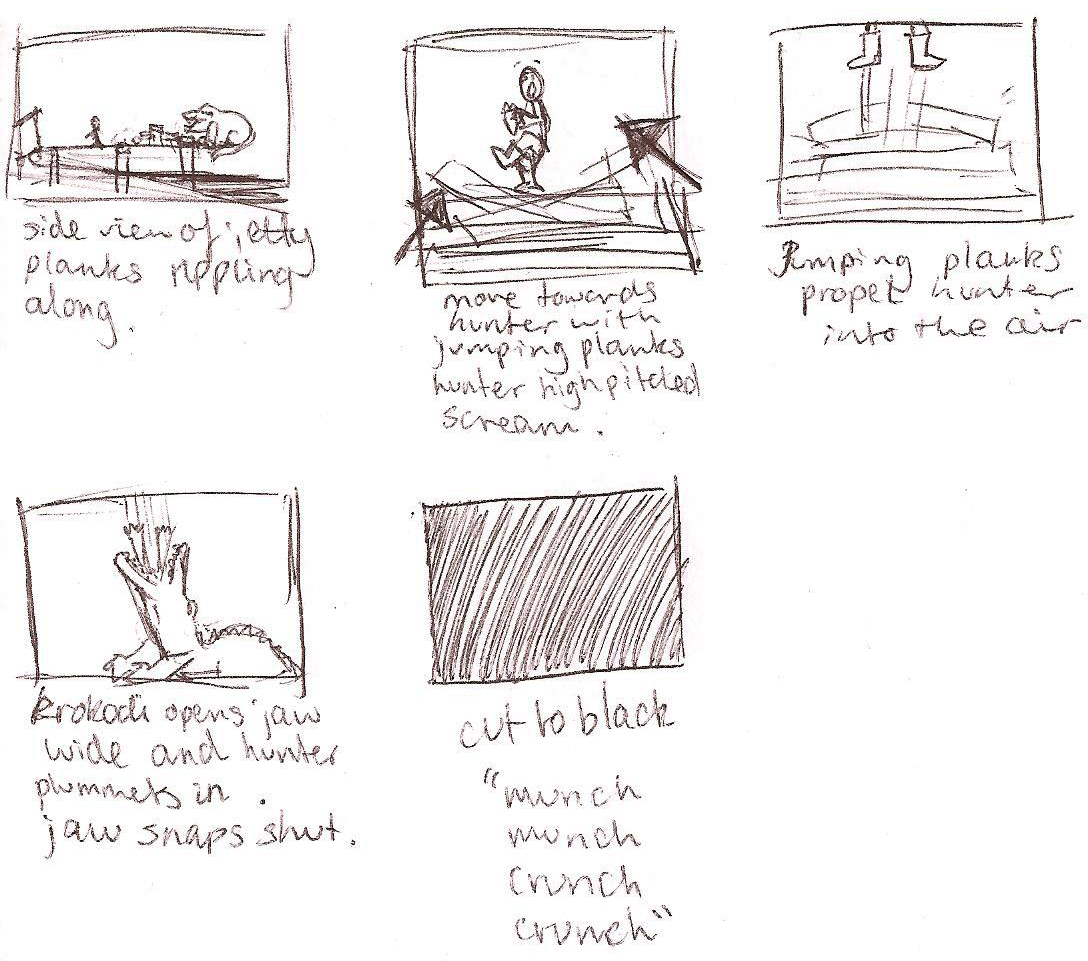 side view of jetty
planks rippling
along.
move towards
hunter with
jumping planks
hunter high pitched
scream.
Jumping planks
propel hunter
into the air
krokodi opens jaw
wide and hunter
plummets in.
jaw snaps shut.
cut to black
"munch
munch
crunch
crunch"